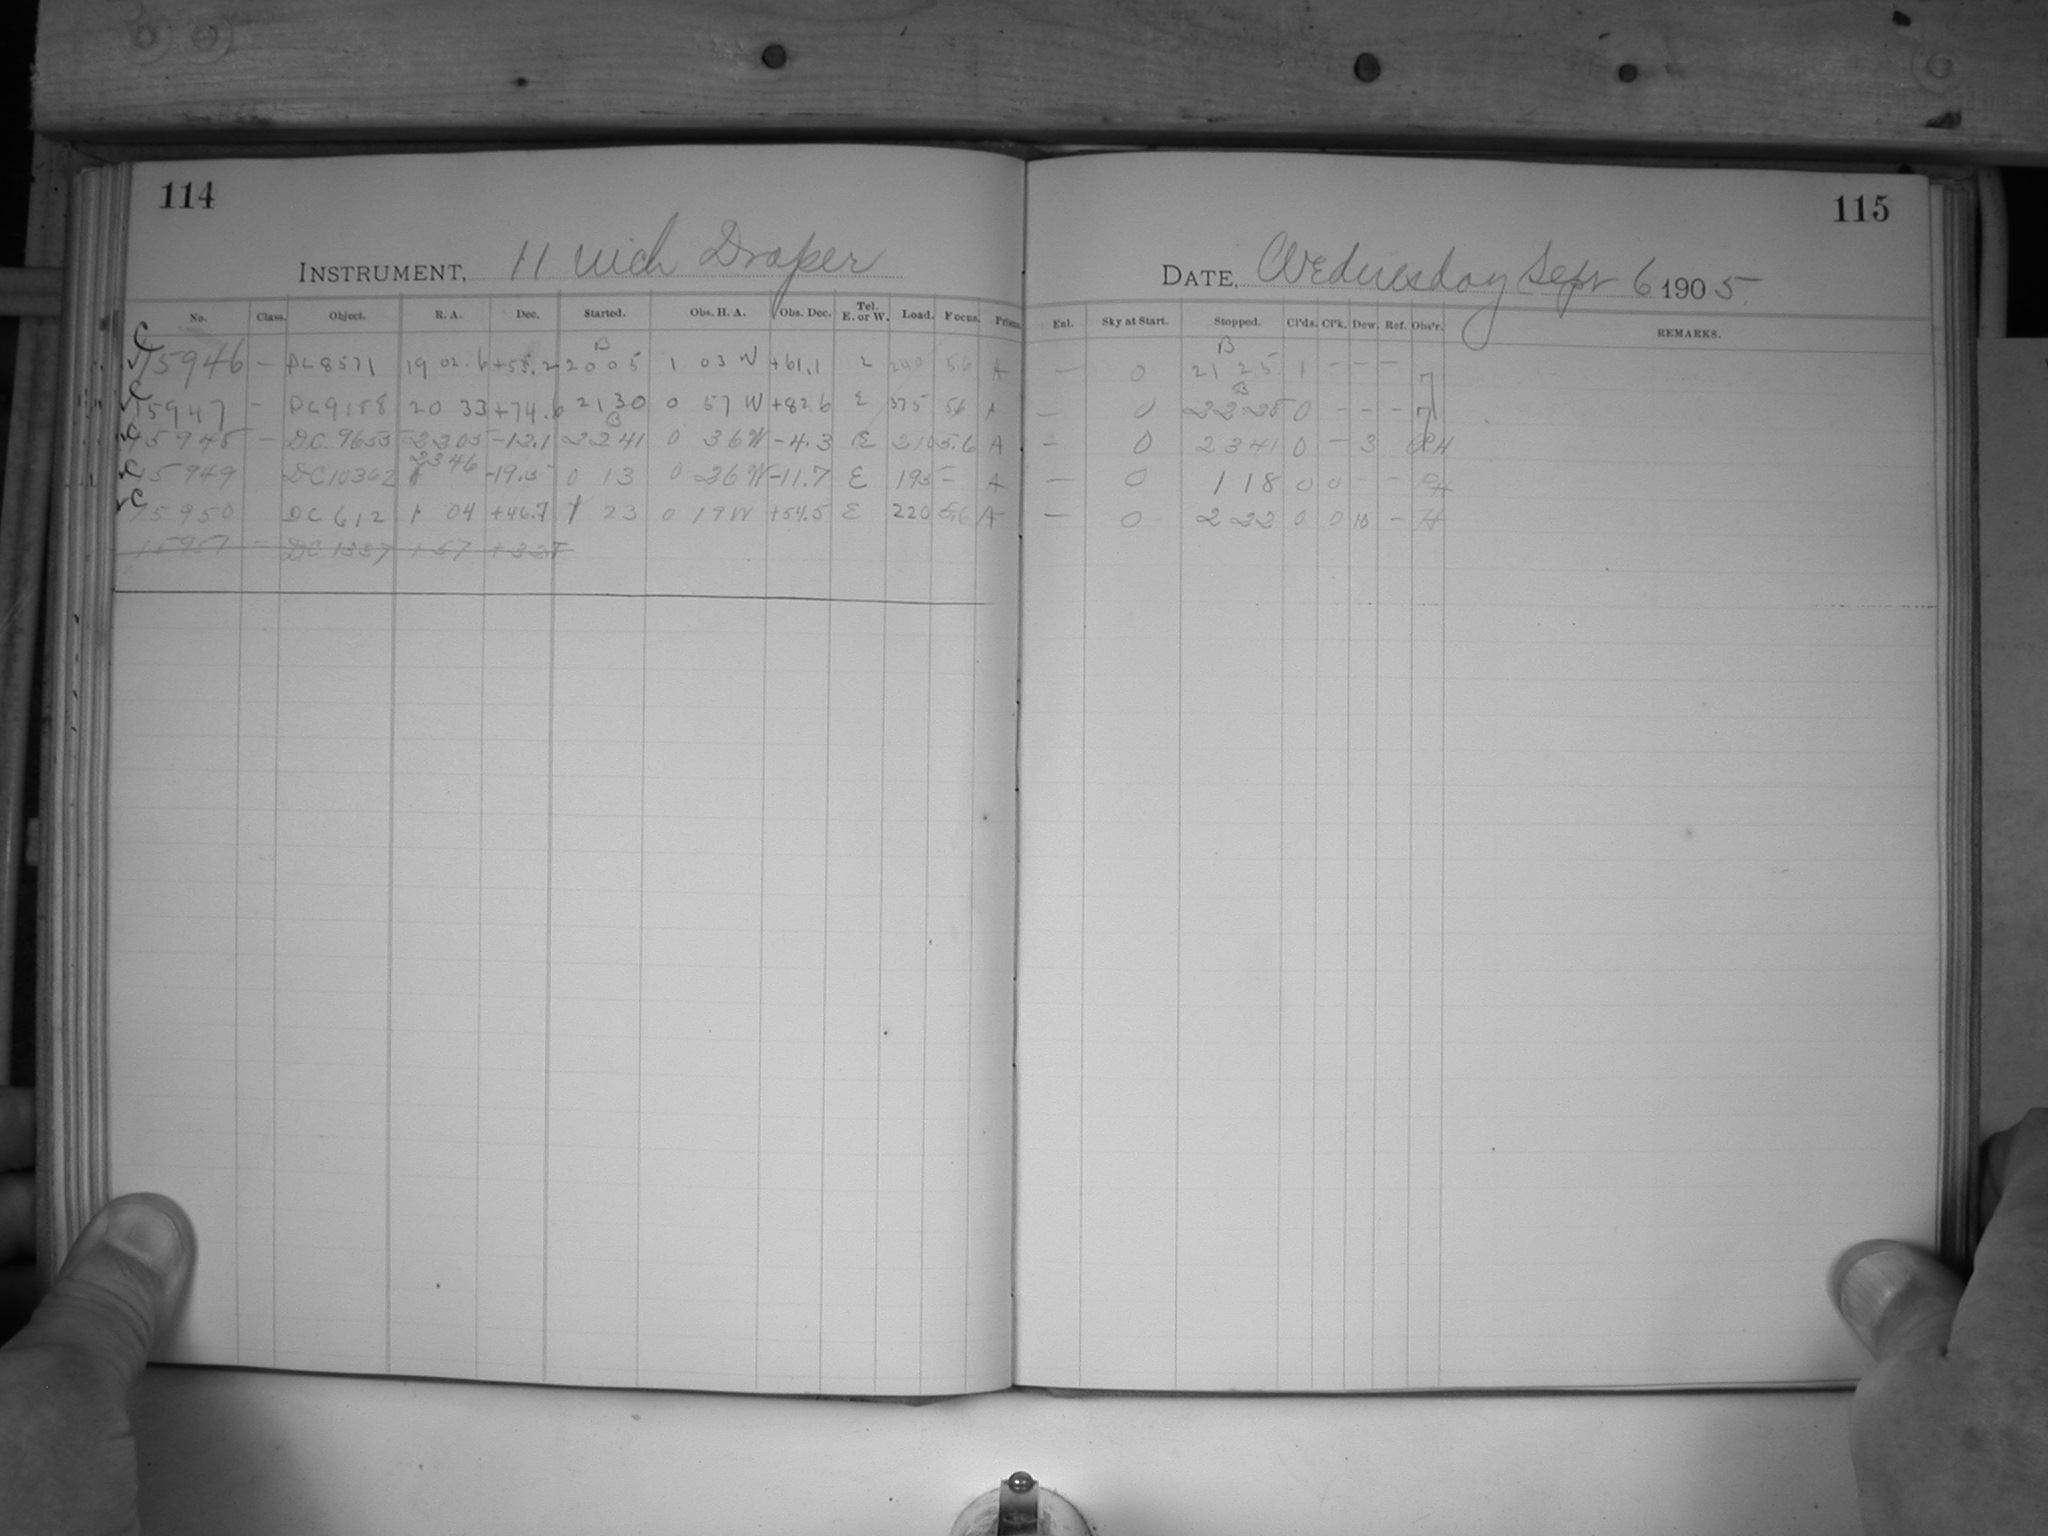 114
INSTRUMENT, 11 inch Draper
No. Class. Object. R. A. Dec. Started. Obs. H. A. Obs. Dec. Tel. E. or W. Load. Focus. Prism.
C B
15946 - DC 8571 19 02.6 +55.2 20 05 1 03 W +61.1 240 5.6 A
C
15947 - DC 9158 20 33 +74.6 21 30 0 57 W +82.6 E 375 56 A
C B
15948 - DC 9653 2305 -12.1 22 41 0 36 W -4.3 E 210 5.6 A
C 2346
15949 DC 10362 -19.5 0 13 0 26 W -11.7 E 195 - A
C
15950 DC 612 1 04 +46.7 1 23 0 19 W +54.5 E 220 5.6 A
15951 - DC 1337 1 57 +
115
DATE, Wednesday Sept 6 1905.
Enl. Sky at Start. Stopped. Cl'ds. Cl'k. Dew. Ref. Obs'r. REMARKS.
B
- 0 21 25 1 - - -
B
- 0 22 28 0 - - -
- 0 23 41 0 - 3
- 0 1 18 0 0 - -
- 0 2 22 0 0 10 - H